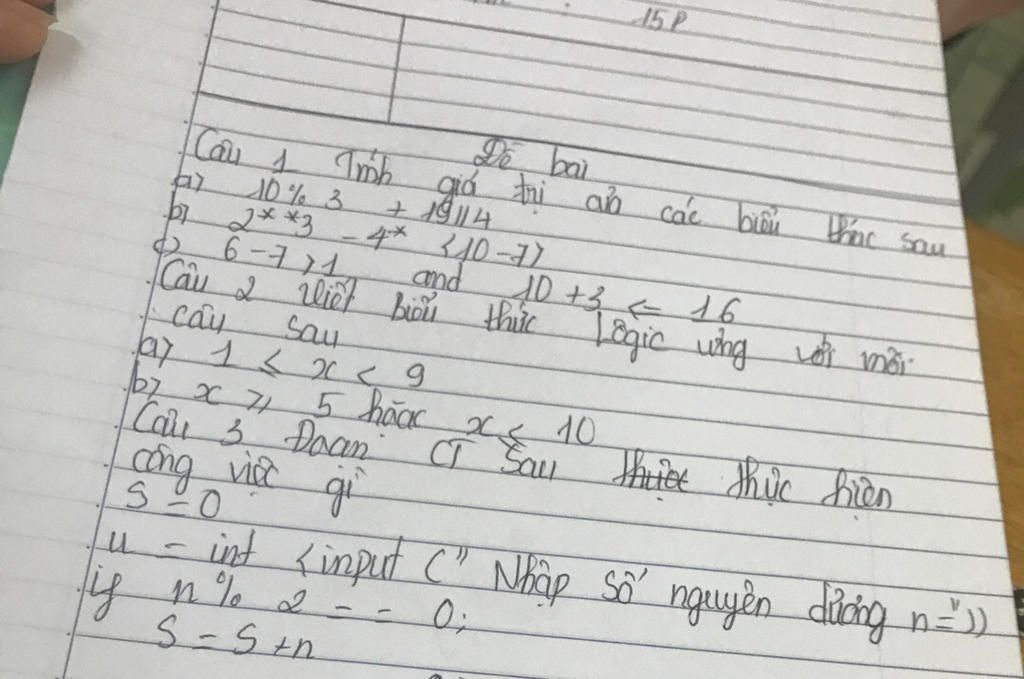 15P
Đề bài
Câu 1 Tính giá trị của các biểu thức sau
a) 10% 3 + 19//4
b) 2**3 - 4* (10-7)
c) 6-7 > 1 and 10 + 3 <= 16
Câu 2 Viết biểu thức Lôgic ứng với mỗi
câu sau
a) 1 ≤ x < 9
b) x ≥ 5 hoặc x ≤ 10
Câu 3 Đoạn CT sau thực hiện
công việc gì
S = 0
u = int (input (" Nhập số nguyên dương n="))
if n % 2 == 0;
S = S + n